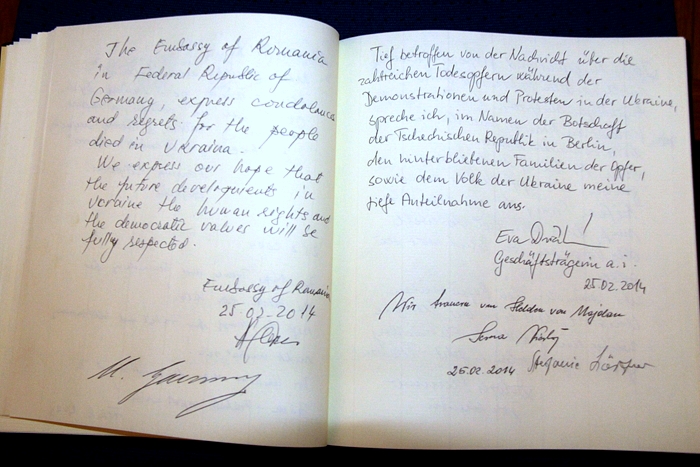 The Embassy of Romania
in Federal Republic of
Germany, express condolance
and regrets for the people
died in Ukraina.
We express our hope that
the future developments in
Ucraine the human rights and
the democratic values will be
fully respected.
Embassy of Romania
25.02.2014
Tief betroffen von der Nachricht über die
zahlreichen Todesopfern während der
Demonstrationen und Protesten in der Ukraine,
spreche ich, im Namen der Botschaft
der Tschechischen Republik in Berlin,
den hinterbliebenen Familien der Opfer,
sowie dem Volk der Ukraine meine
tiefe Anteilnahme aus.
Eva
Geschäftsträgerin a.i.
25.02.2014
Wir trauern um Helden von Majdan
25.02.2014 Stefanie